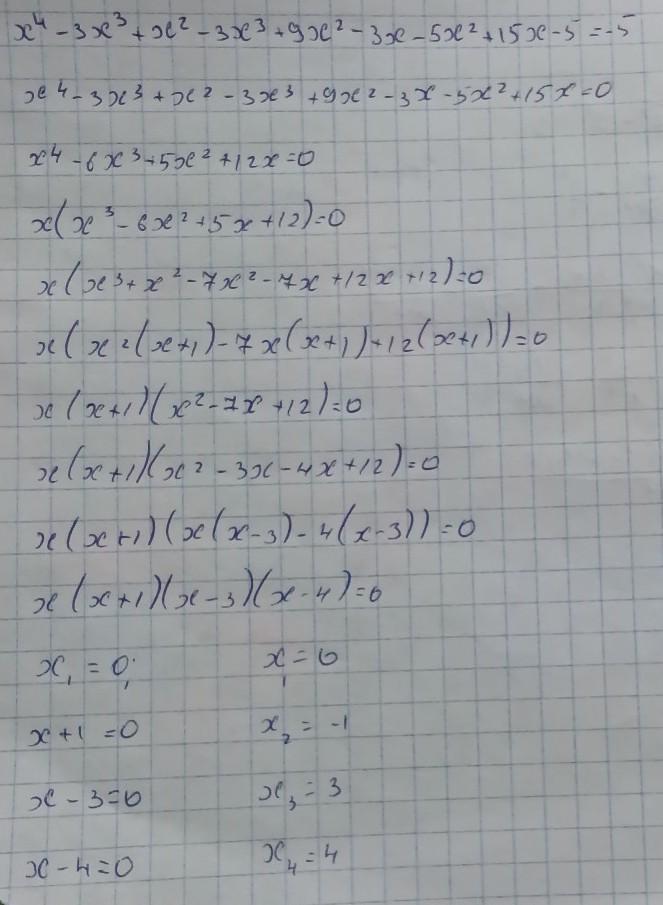 x⁴ - 3x³ + x² - 3x³ + 9x² - 3x - 5x² + 15x - 5 = -5
x⁴ - 3x³ + x² - 3x³ + 9x² - 3x - 5x² + 15x = 0
x⁴ - 6x³ + 5x² + 12x = 0
x(x³ - 6x² + 5x + 12) = 0
x(x³ + x² - 7x² - 7x + 12x + 12) = 0
x(x²(x+1) - 7x(x+1) + 12(x+1)) = 0
x(x+1)(x² - 7x + 12) = 0
x(x+1)(x² - 3x - 4x + 12) = 0
x(x+1)(x(x-3) - 4(x-3)) = 0
x(x+1)(x-3)(x-4) = 0
x₁ = 0; x₁ = 0
x + 1 = 0 x₂ = -1
x - 3 = 0 x₃ = 3
x - 4 = 0 x₄ = 4